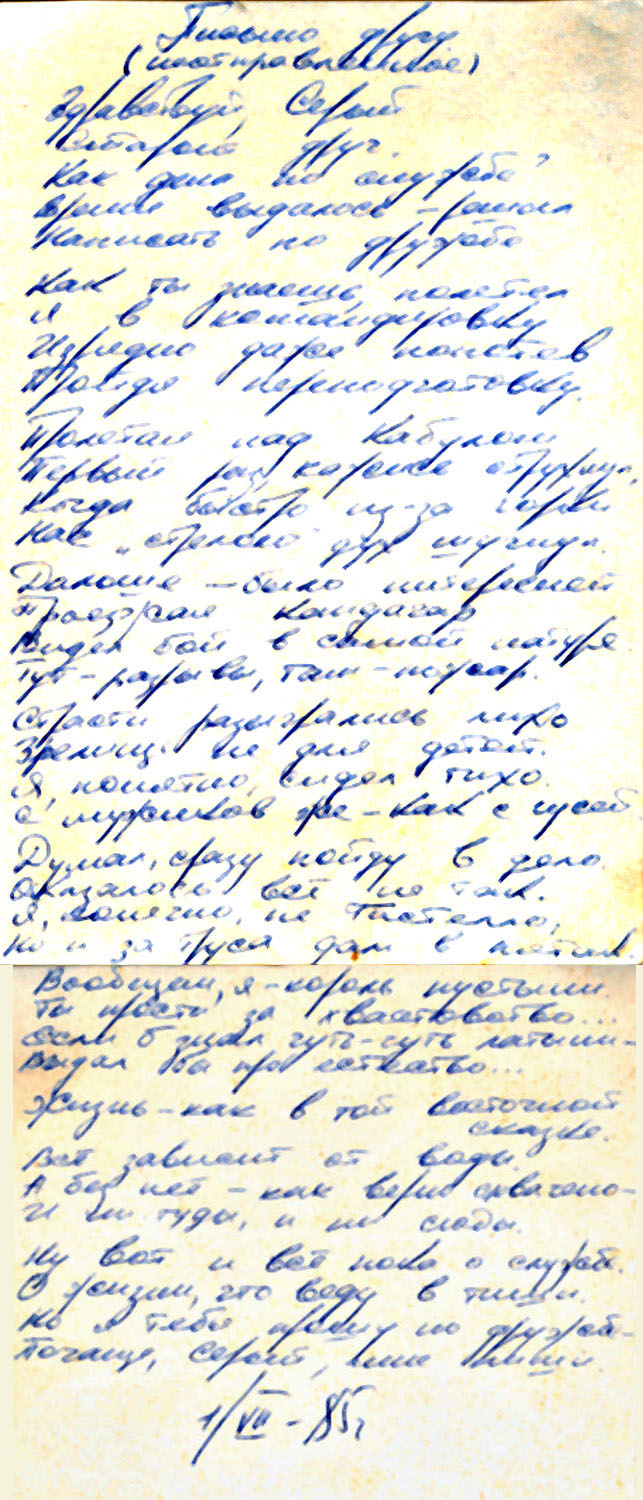 Письмо другу
(неотправленное)
Здравствуй, Серый
Старый друг.
Как дела по службе?
Время выдалось – решил
Написать по дружбе
Как ты знаешь, полетел
Я в командировку
Изрядно даже попотев
Пройдя переподготовку.
Пролетая над Кабулом
Первый раз, кажись, струхнул,
Когда быстро из-за горки
Нас „стрелою" дух шугнул.
Дальше – было интересней
Проезжая Кандагар
Видел бой в самой натуре
Тут – разрывы, там – пожар.
Страсти разыгрались лихо
Зрелище не для детей.
Я, понятно, сидел тихо.
С мужиков же – как с гусей.
Думал, сразу пойду в дело.
Оказалось всё не так.
Я, конечно, не Гастелло,
Но и за труса дам в пятак.
Вообщем, я – король пустыни.
Ты прости за хвастовство...
Если б знал чуть-чуть латыни –
Выдал бы про естество...
Жизнь – как в той восточной
сказке.
Всё зависит от воды.
А без неё – как верно схвачено –
И ни туды, и ни сюды.
Ну вот и всё пока о службе.
О жизни, что веду в тиши.
Но я тебя прошу по дружбе –
Почаще, Серый, мне пиши.
1/VII – 85г